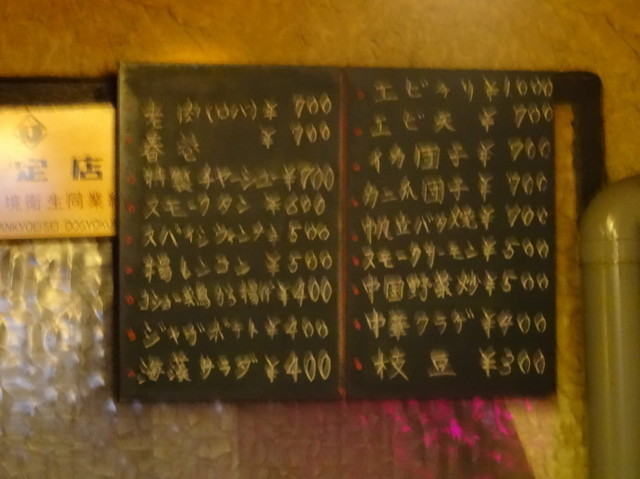 定店
環衛生同業組
ANKYOEISEI DOGYOKU
肉(ロバ) ¥700
春巻 ¥700
特製チャーシュー ¥700
スモークタン ¥600
スペインウィンナー 500
揚レンコン ¥500
鶏から揚げ ¥400
ジャガポテト ¥400
海藻サラダ ¥400
エビチリ ¥1000
エビ天 ¥700
イカ団子 ¥700
カニ爪団子 ¥700
帆立バタ焼 ¥700
スモークサーモン ¥500
中国野菜炒 ¥500
中華クラゲ ¥400
枝豆 ¥300